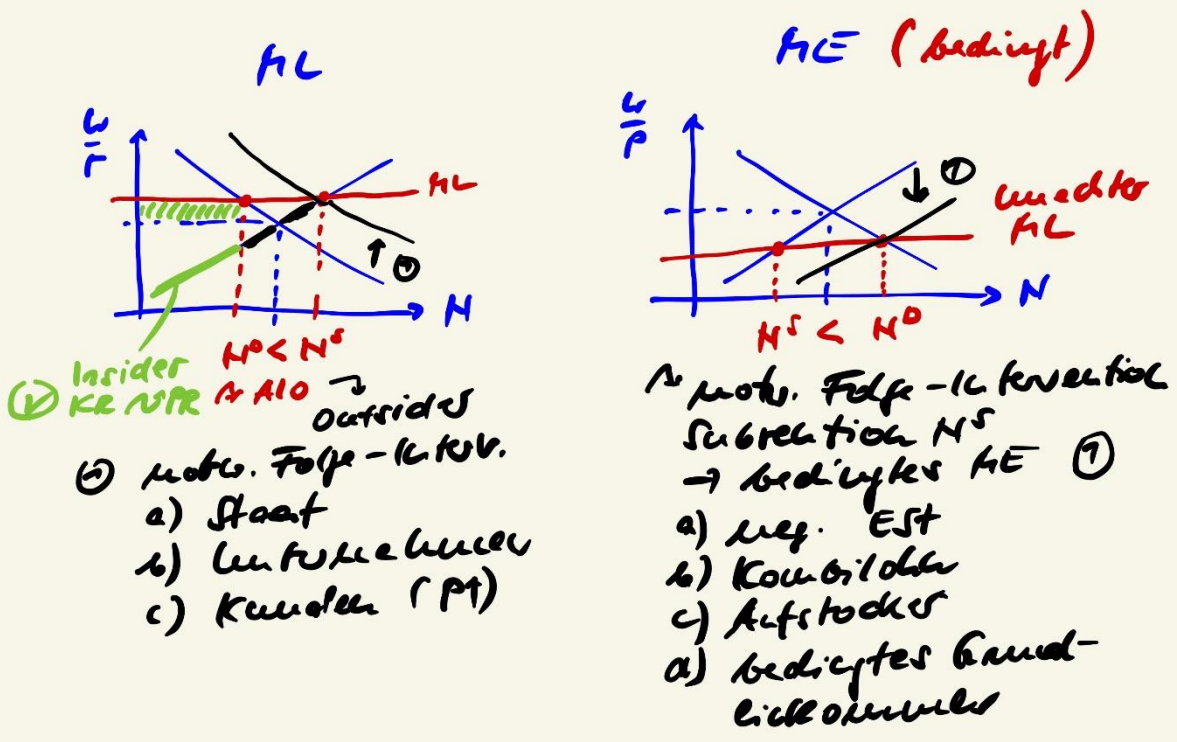 ML
w/r
ML
N
N^D < N^S
Insider
KR ~ PR
~> ALO
Outsider
motiv. Folge-Interv.
a) Staat
b) Unternehmen
c) Kunden (P↑)
ME (bedingt)
w/p
①
unechter
ML
N
N^S < N^D
~> motiv. Folge-Intervention
Subvention N^S
→ bedingtes ME ①
a) neg. ESt
b) Kombilohn
c) Aufstocker
d) bedingtes Grund-
einkommen